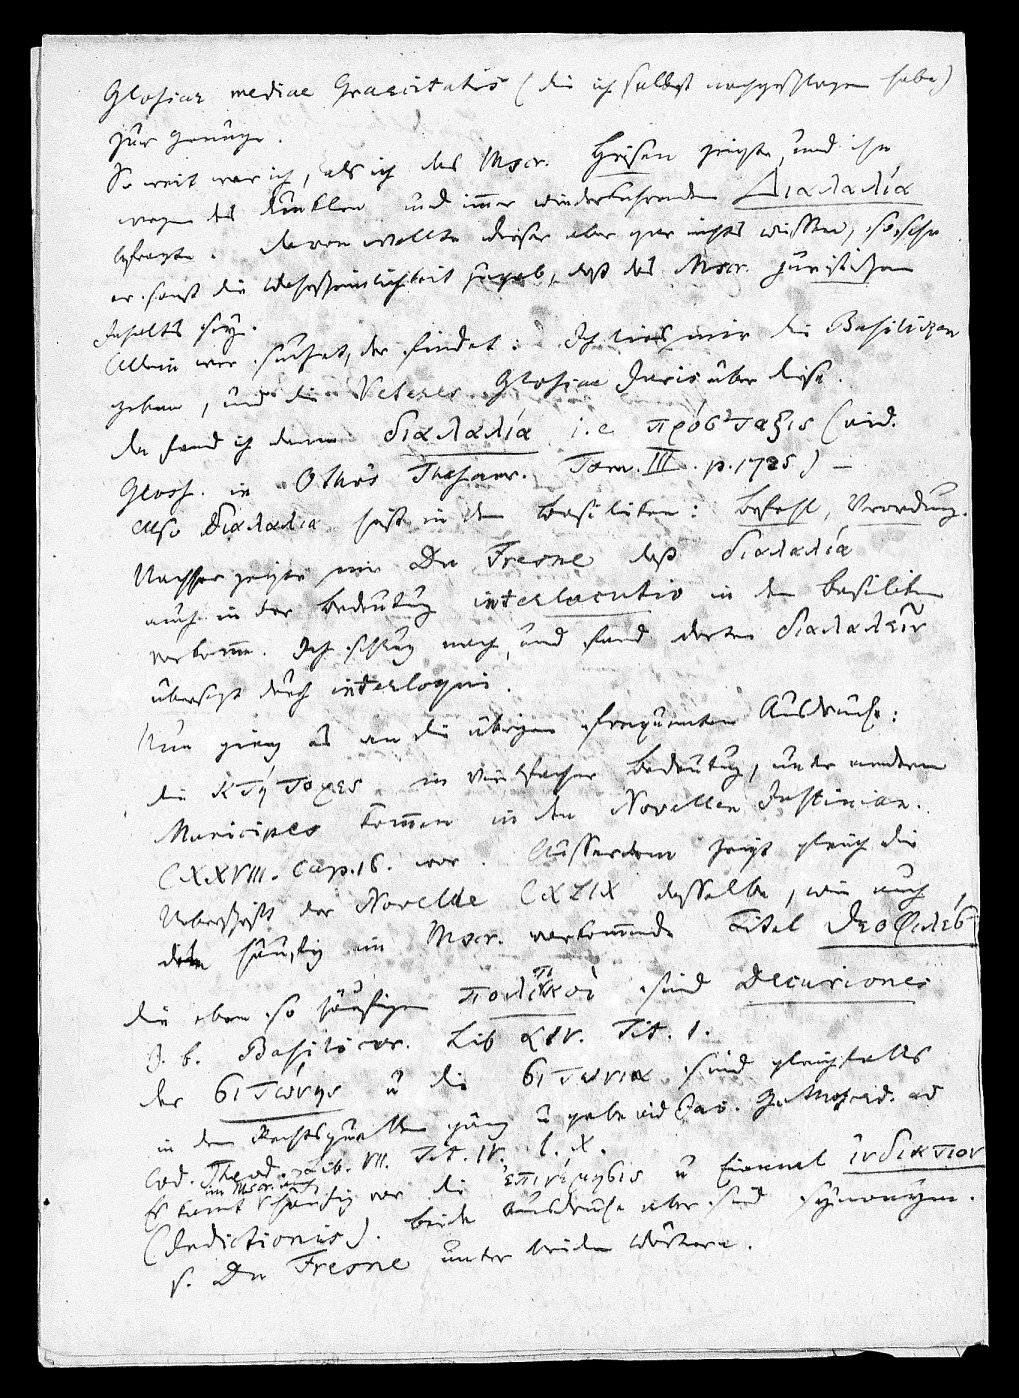 Glossar mediae Graecitatis (die ich selbst nachgeschlagen habe)
zur Genüge.
So weit war ich, als ich das Mscr. Heisen zeigte, und ihn
wegen des dunklen und immer wiederkehrenden Διαλαλία
befragte. Davon wollte dieser aber gar nichts wissen, so sehr
er sonst die Wahrscheinlichkeit zugab, daß das Mscr. juristischen
Inhalts sey.
Allein wer suchet, der findet: Ich ließ mir die Basilicen
geben, und die Veteres Glossae Juris über diese.
Da fand ich denn διαλαλία i.e. πρόσταξις (vid.
Gloss. in Otho's Thesaur. Tom. III. p. 1725) —
Also διαλαλια heißt in den Basiliken: Befehl, Verordnung.
Nachher zeigte mir Du Fresne daß διαλαλία
auch in der Bedeutung interlocutio in den Basiliken
vorkomme. Ich schlug nach, und fand darin διαλαλεῖν
übersetzt durch interloqui.
Nun gieng es an die übrigen frequenten Ausdrücke:
die κτήτορες in vielfacher Bedeutung, unter andern
Municipes kommen in den Novellen Justinian.
CXXVIII. cap. 16. vor. Ausserdem zeigt gleich die
Ueberschrift der Novelle CXLIX dasselbe, wie auch
den häufig im Mscr. vorkommende Titel θεοφιλέσ
die eben so häufigen πολιτικοὶ sind Decuriones
z. b. Basilicor. Lib LIV. Tit. 1.
der σιτώνης u die σιτωνια sind gleichfalls
in den Rechtsquellen gäng u gebe vid Jac. Gothofred. ad
Cod. Theod. Lib. VII. Tit. IV. l. X.
im Mscr. auch
Es kömt häufig vor die ἐπινέμησις u Einmal ἰνδικτιον
(Indictionis). beide Ausdrücke aber sind synonym.
v. Du Fresne unter beiden Wörtern.